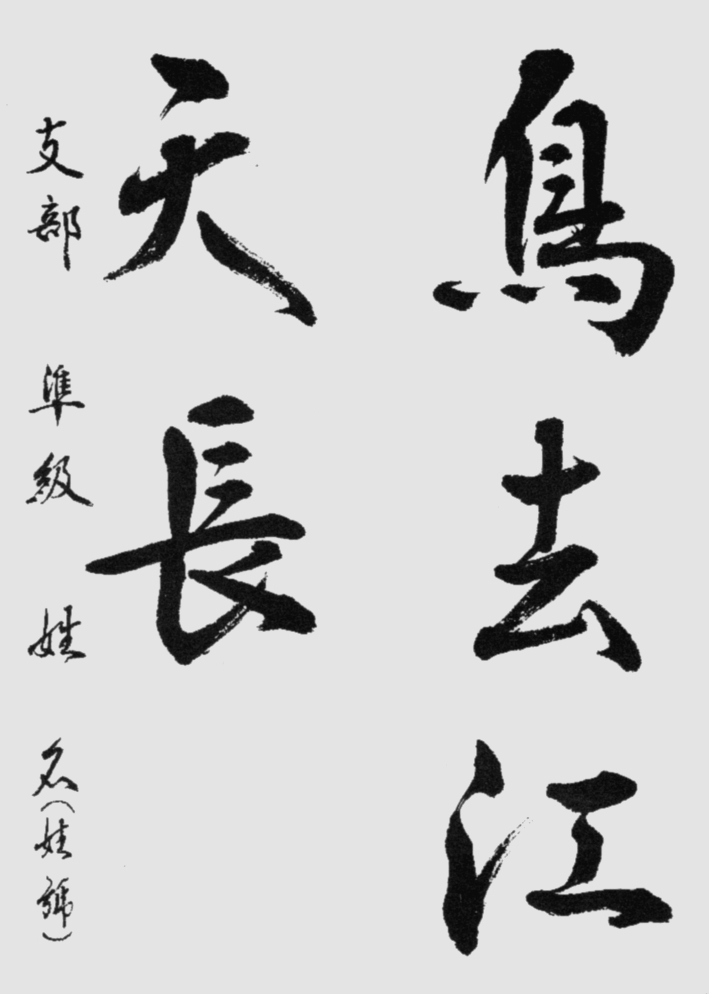 鳥去江
天長
支部 準級 姓名(姓號)